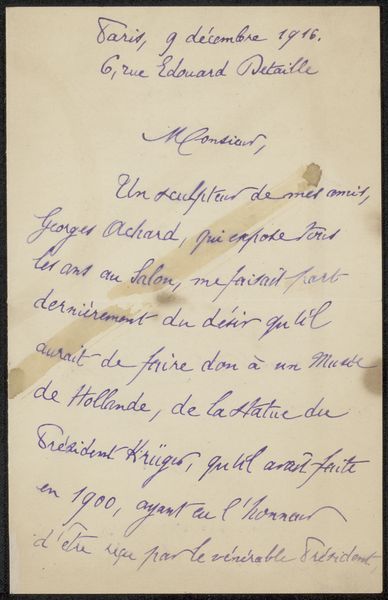 Paris, 9 décembre 1916.
6, rue Edouard Detaille
Monsieur,
Un sculpteur de mes amis,
Georges Achard, qui expose tous
les ans au Salon, me faisait part
dernièrement du désir qu'il
aurait de faire don à un Musée
de Hollande, de la statue du
Président Krüger, qu'il avait faite
en 1900, ayant eu l'honneur
d'être reçu par le vénérable Président